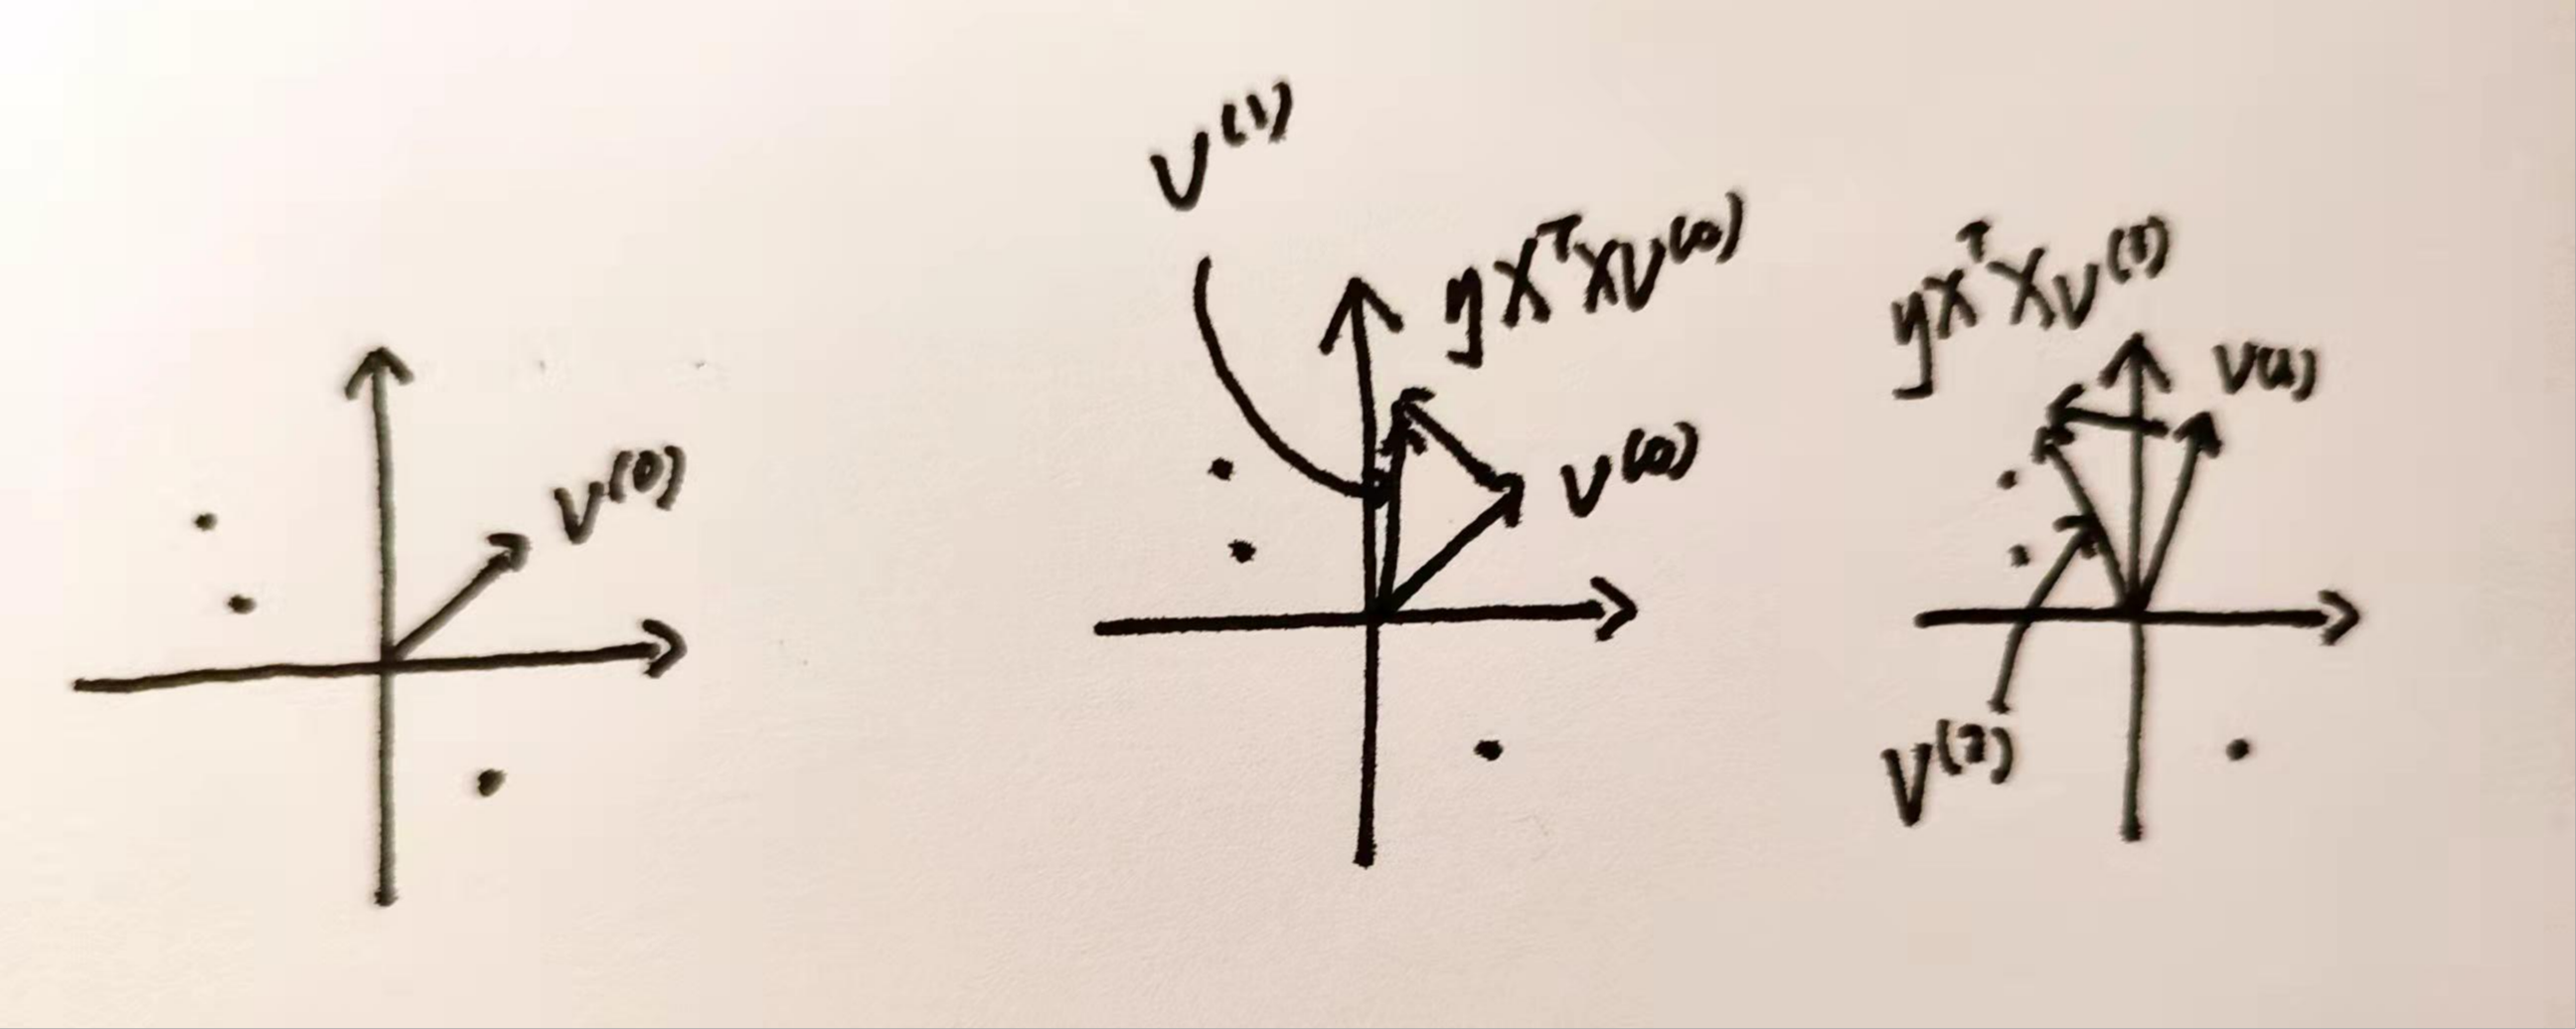 V^(0)
V^(1)
yX^TXV^(0)
V^(0)
yX^TXV^(1)
V(1)
V^(2)